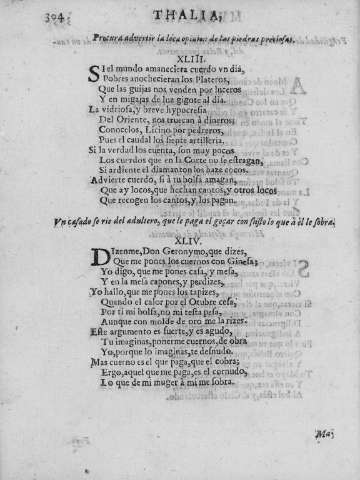 304 THALIA,
Procura advertir la loca opinion de las piedras preciosas.
XLIII.
SI el mundo amaneciera cuerdo vn dia,
Pobres anochecieran los Plateros,
Que las guijas nos venden por luceros
Y en migajas de luz gigote al dia.
La vidriosa, y breve hypocresia
Del Oriente, nos truecan à dineros;
Conocelos, Licino por pedreros,
Pues el caudal los siente artilleria.
Si la verdad los cuenta, son muy pocos
Los cuerdos que en la Corte no se estragan,
Si ardiente el diamanton los haze cocos.
Advierte cuerdo, si à tu bolsa amagan,
Que ay locos, que hechan cantos, y otros locos
Que recogen los cantos, y los pagan.
Vn casado se rie del adultero, que le paga el gozar con susto lo que à èl le sobra.
XLIV.
DIzenme, Don Geronymo, que dizes,
Que me pones los cuernos con Ginesa;
Yo digo, que me pones casa, y mesa,
Y en la mesa capones, y perdizes.
Yo hallo, que me pones los tapizes,
Quando el calor por el Octubre cesa,
Por ti mi bolsa, no mi testa pesa,
Aunque con molde de oro me la rizes.
Este argumento es fuerte, y es agudo,
Tu imaginas, ponerme cuernos, de obra
Yo, porque lo imaginas, te desnudo.
Mas cuerno es el que paga, que el que cobra;
Ergo, aquel que me paga, es el cornudo,
Lo que de mi muger à mi me sobra.
Mas